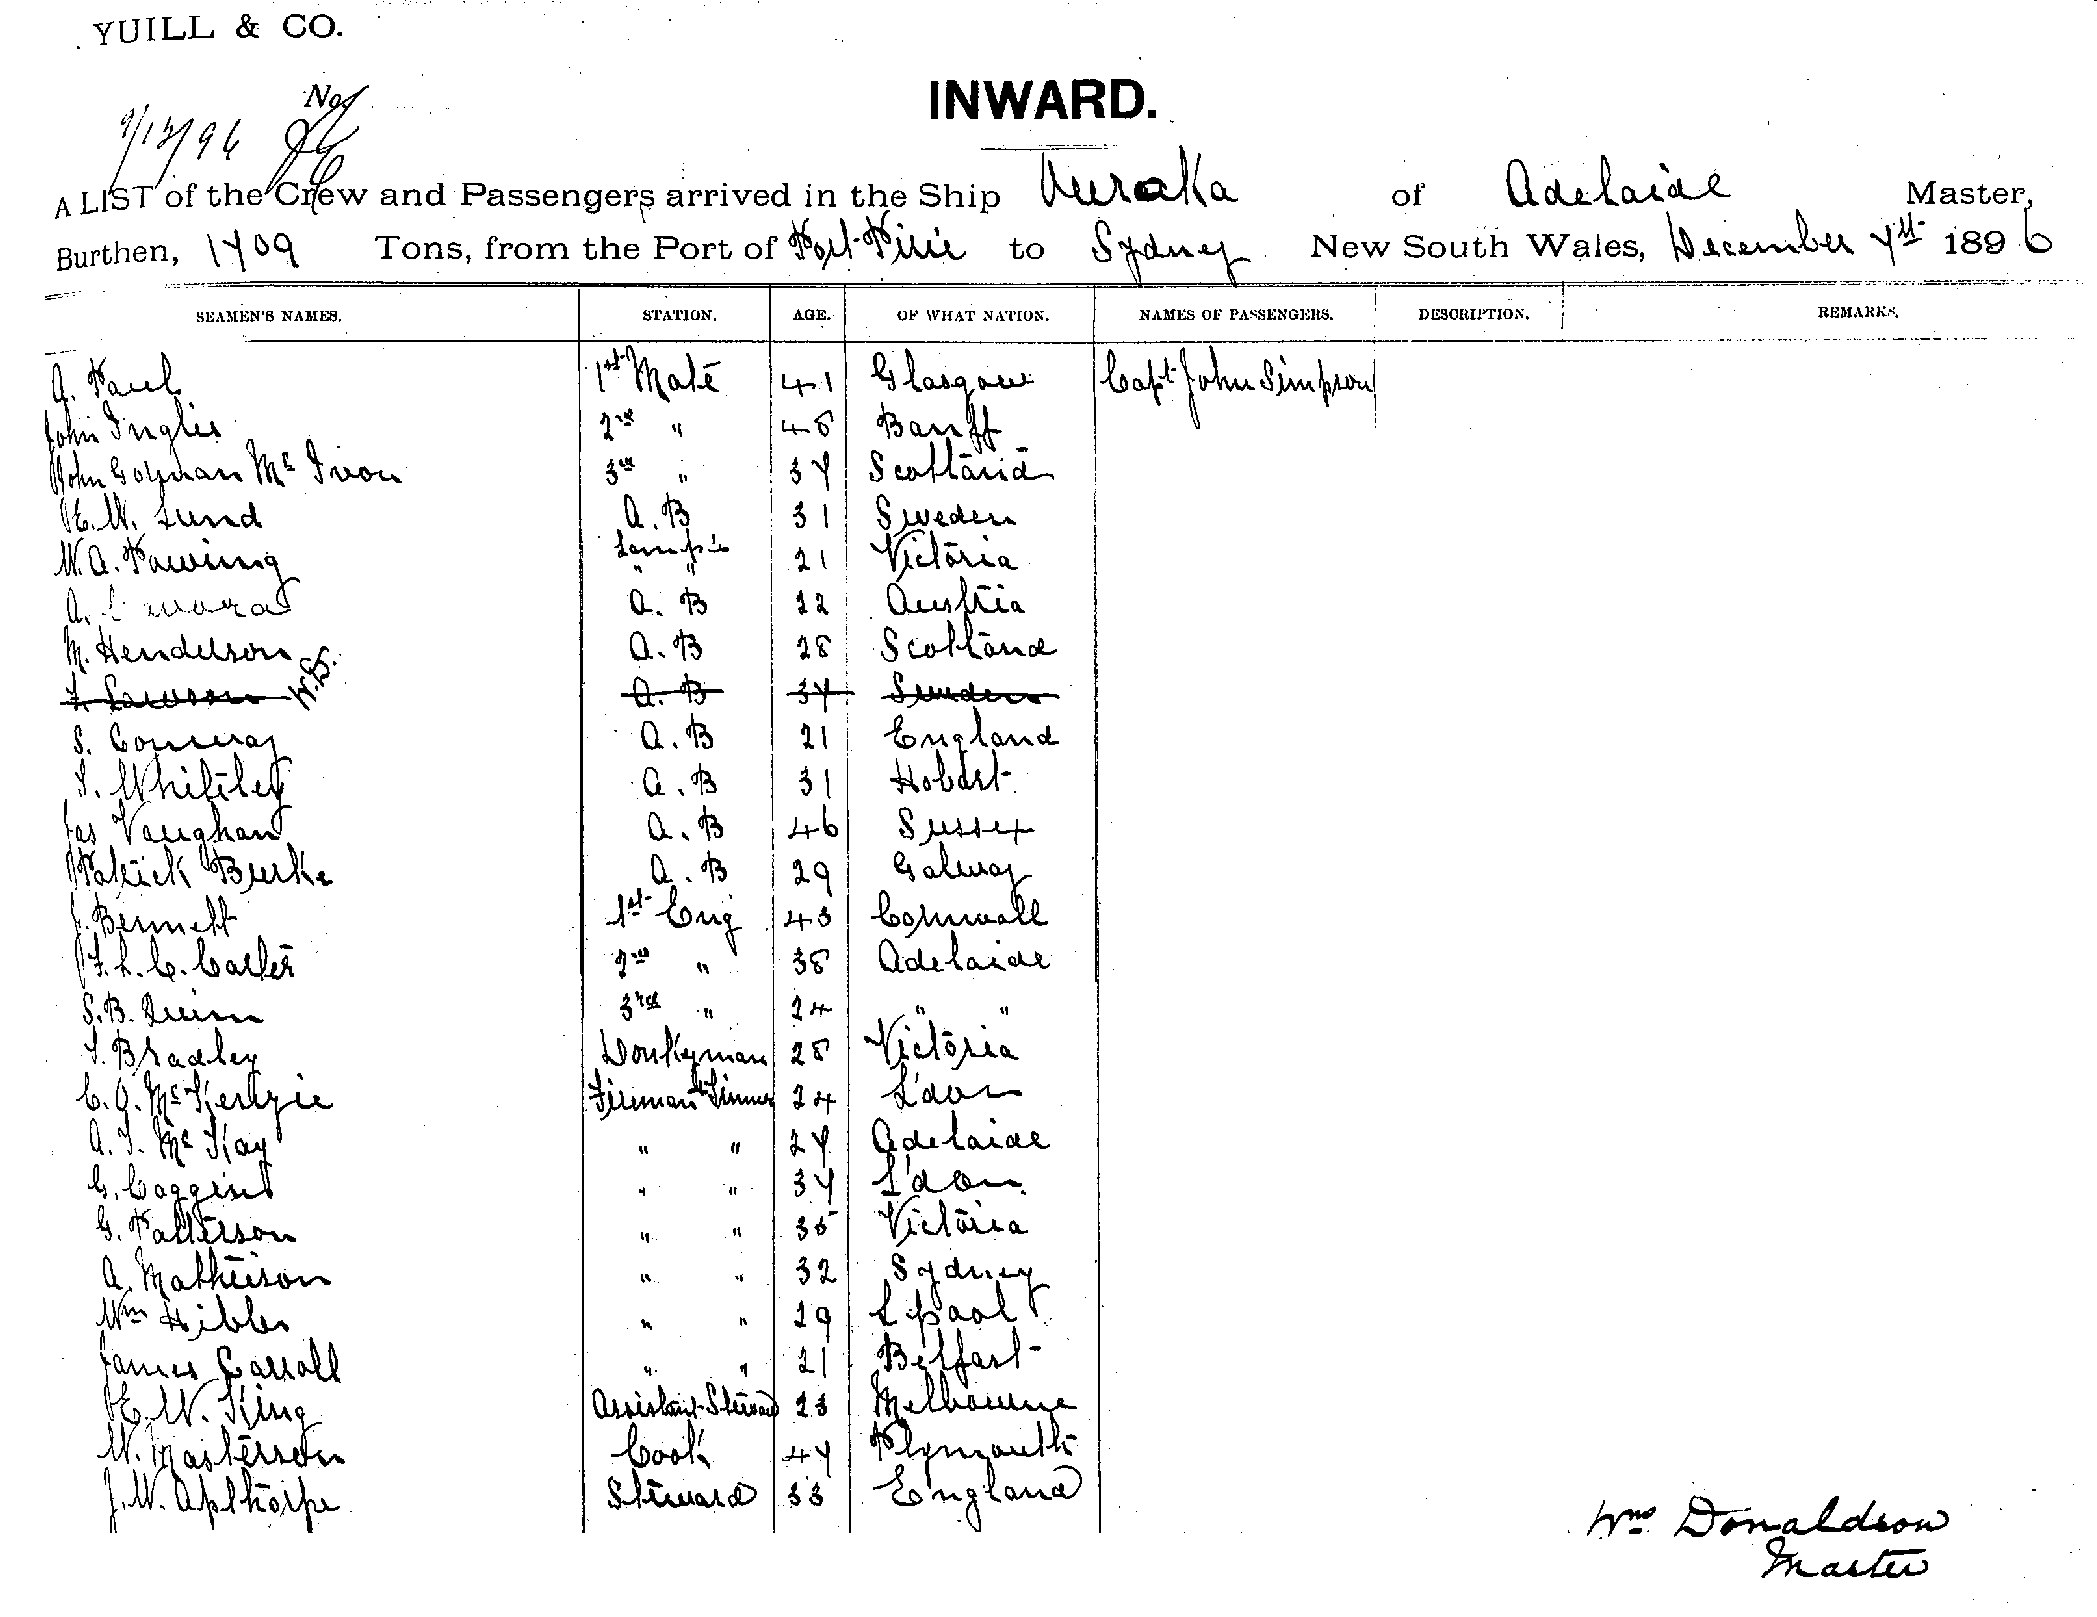 YUILL & CO.
No
9/12/96
INWARD.
A LIST of the Crew and Passengers arrived in the Ship Auraka of Adelaide Master,
Burthen, 1709 Tons, from the Port of Port Pirie to Sydney New South Wales, December 7th 1896
SEAMEN'S NAMES. STATION. AGE. OF WHAT NATION. NAMES OF PASSENGERS. DESCRIPTION. REMARKS.
A. Paul 1st Mate 41 Glasgow Capt John Simpson
John Inglis 2nd " 48 Banff
John Mc 3rd " 37 Scotland
E. W. Lund A. B 31 Sweden
W. A. 21 Victoria
A. A. B 22 Austria
M. Henderson A. B 28 Scotland
F. Lawson A. B 37 Sweden W.D.
S. Conway A. B 21 England
T. Whitley A. B 31 Hobart
Jas Vaughan A. B 46 Sussex
Patrick Burke A. B 29 Galway
J. Bennett 1st Eng 43 Cornwall
F. L. C. Carter 2nd " 38 Adelaide
S. B. Quinn 3rd " 24 " "
T. Bradley Donkeyman 28 Victoria
C. J. McKenzie Fireman & Trimmer 24 L'don
A. T. McKay " " 27 Adelaide
G. Coggins " " 37 L'don
G. Patterson " " 35 Victoria
A. Mathieson " " 32 Sydney
Wm Hibbs " " 29 L'pool
James Carroll " " 21 Belfast
E. W. King Assistant Steward 23 Melbourne
W. Masterson Cook 47 Plymouth
J. W. Apthorpe Steward 33 England
Wm Donaldson
Master